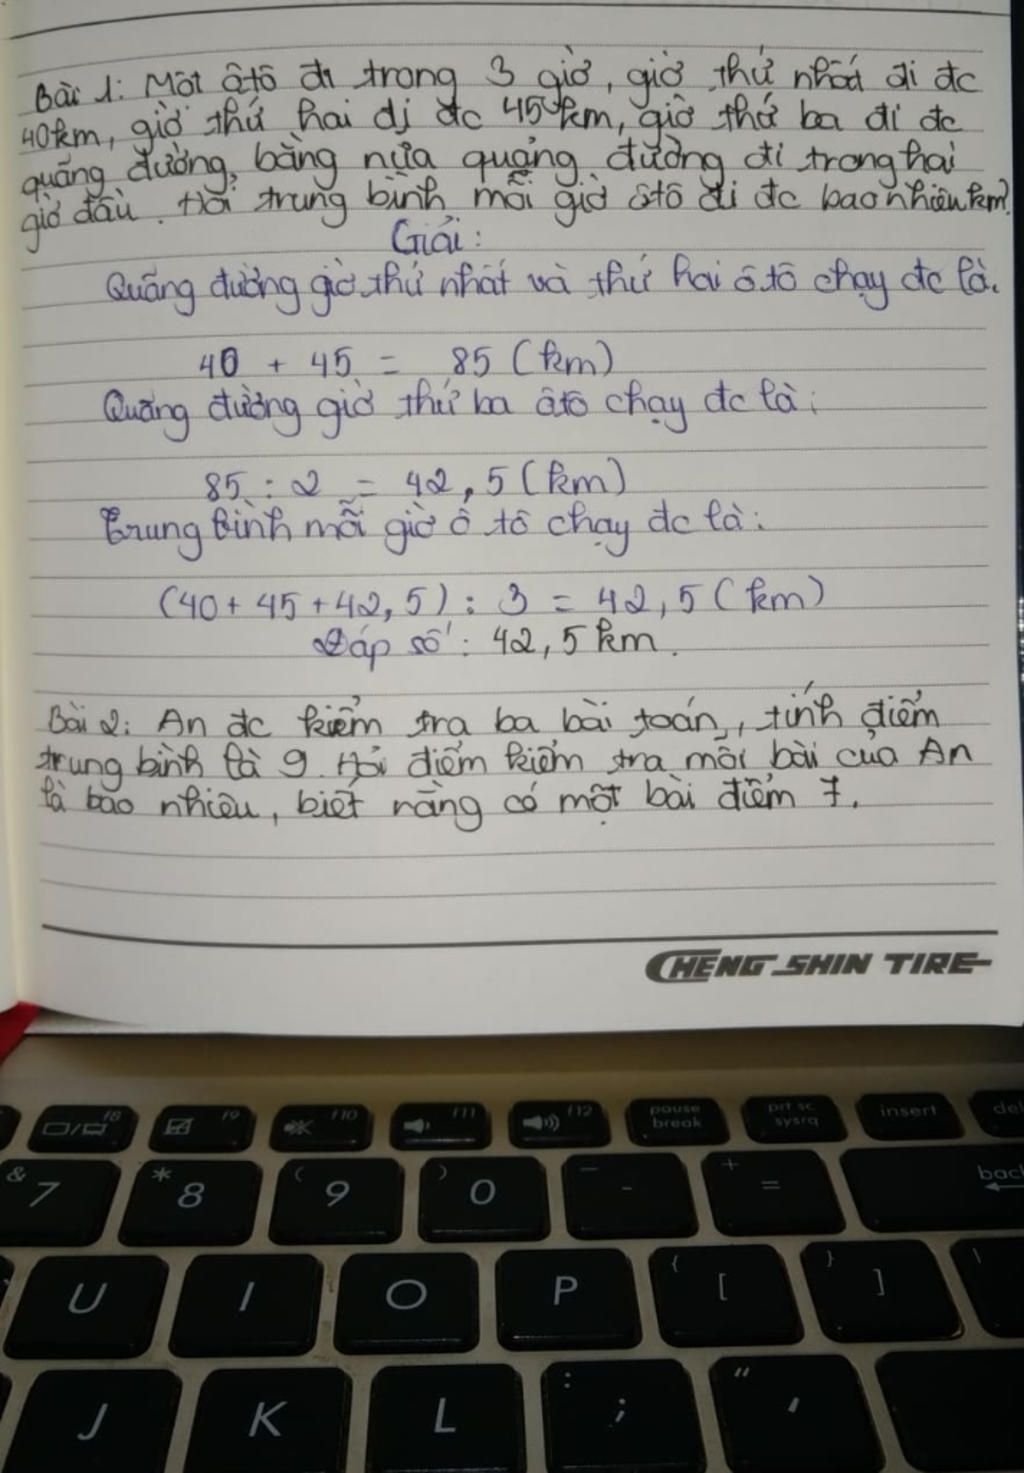 Bài 1: Một ôtô đi trong 3 giờ, giờ thứ nhất đi đc
40km, giờ thứ hai đi đc 45km, giờ thứ ba đi đc
quãng đường, bằng nửa quãng đường đi trong hai
giờ đầu. Hỏi trung bình mỗi giờ ôtô đi đc bao nhiêu km?
Giải:
Quãng đường giờ thứ nhất và thứ hai ô tô chạy đc là.
40 + 45 = 85 (km)
Quãng đường giờ thứ ba ôtô chạy đc là:
85 : 2 = 42,5 (km)
Trung bình mỗi giờ ô tô chạy đc là:
(40 + 45 + 42,5) : 3 = 42,5 (km)
Đáp số: 42,5 km.
Bài 2: An đc kiểm tra ba bài toán, tính điểm
trung bình là 9. Hỏi điểm kiểm tra mỗi bài của An
là bao nhiêu, biết rằng có một bài điểm 7.
CHENG SHIN TIRE
f8 f9 f10 f11 f12 pause break prt sc sysrq insert del
& 7 * 8 ( 9 ) 0 _ - + = back
U I O P { [ } ] \
J K L : ; " '